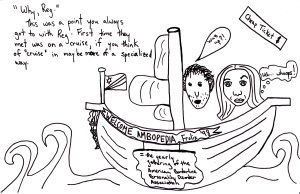 "Why, Reg."
This was a point you always
got to with Reg. First time they
met was on a cruise, if you think
of "cruise" in maybe more of a specialized
way.
Cheap Ticket
WELCOME AMBOPEDIA Frolix
= the yearly
gathering of the
American Borderline
Personality Disorder
Association